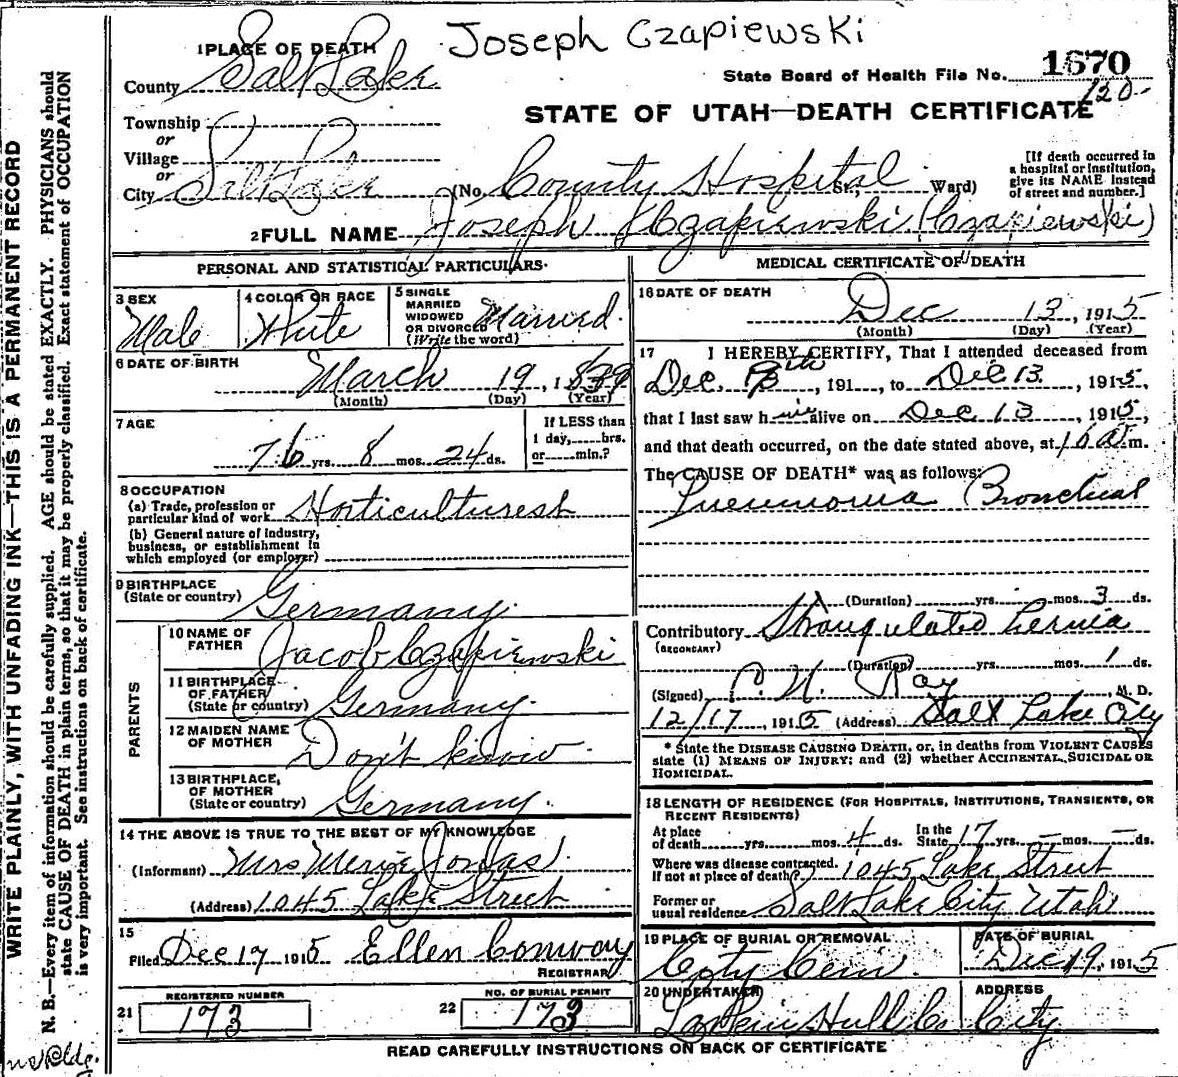 Joseph Czapiewski
1 PLACE OF DEATH
County Salt Lake
State Board of Health File No. 1670
120-
STATE OF UTAH—DEATH CERTIFICATE
Township
or
Village
or
City Salt Lake (No. County Hospital St., Ward)
[If death occurred in a hospital or institution, give its NAME instead of street and number.]
2 FULL NAME Joseph Czapiewski (Czapiewski)
PERSONAL AND STATISTICAL PARTICULARS
3 SEX
Male
4 COLOR OR RACE
White
5 SINGLE MARRIED WIDOWED OR DIVORCED (Write the word)
Married.
6 DATE OF BIRTH
March 19, 1839
(Month) (Day) (Year)
7 AGE
76 yrs. 8 mos. 24 ds.
If LESS than 1 day, hrs. or min.?
8 OCCUPATION
(a) Trade, profession or particular kind of work Horticulturest
(b) General nature of industry, business, or establishment in which employed (or employer)
9 BIRTHPLACE
(State or country) Germany.
PARENTS
10 NAME OF FATHER Jacob Czapiewski
11 BIRTHPLACE OF FATHER (State or country) Germany.
12 MAIDEN NAME OF MOTHER Don't know
13 BIRTHPLACE, OF MOTHER (State or country) Germany.
14 THE ABOVE IS TRUE TO THE BEST OF MY KNOWLEDGE
(Informant) Mrs Jonas
(Address) 1045 Lake Street
15
Filed Dec 17 1915 Ellen Conway
REGISTRAR
21 REGISTERED NUMBER 173
22 NO. OF BURIAL PERMIT 173
MEDICAL CERTIFICATE OF DEATH
16 DATE OF DEATH
Dec 13, 1915
(Month) (Day) (Year)
17 I HEREBY CERTIFY, That I attended deceased from
Dec. th, 191 , to Dec 13, 1915,
that I last saw him alive on Dec 13, 1915,
and that death occurred, on the date stated above, at 10 a m.
The CAUSE OF DEATH* was as follows:
Pneumonia Bronchial
(Duration) yrs. mos. 3 ds.
Contributory Strangulated hernia
(SECONDARY)
(Duration) yrs. mos. 1 ds.
(Signed) Ray, M. D.
12/17, 1915 (Address) Salt Lake City
* State the DISEASE CAUSING DEATH, or, in deaths from VIOLENT CAUSES
state (1) MEANS OF INJURY; and (2) whether ACCIDENTAL, SUICIDAL OR
HOMICIDAL.
18 LENGTH OF RESIDENCE (FOR HOSPITALS, INSTITUTIONS, TRANSIENTS, OR RECENT RESIDENTS)
At place of death yrs. mos. 4 ds. In the State 17 yrs. – mos. – ds.
Where was disease contracted. If not at place of death? 1045 Lake Street
Former or usual residence Salt Lake City Utah
19 PLACE OF BURIAL OR REMOVAL
City Cem.
DATE OF BURIAL
Dec 19, 1915
20 UNDERTAKER
ADDRESS
City
READ CAREFULLY INSTRUCTIONS ON BACK OF CERTIFICATE
WRITE PLAINLY, WITH UNFADING INK—THIS IS A PERMANENT RECORD
N. B.—Every item of information should be carefully supplied. AGE should be stated EXACTLY. PHYSICIANS should
state CAUSE OF DEATH in plain terms, so that it may be properly classified. Exact statement of OCCUPATION
is very important. See instructions on back of certificate.